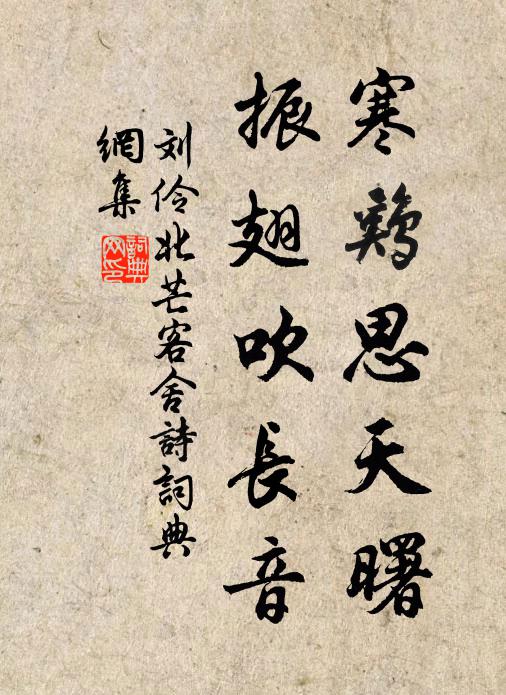 寒鷄思天曙
振翅吹長音
刘伶北芒客舍詩詞典
網集
詞典
网印